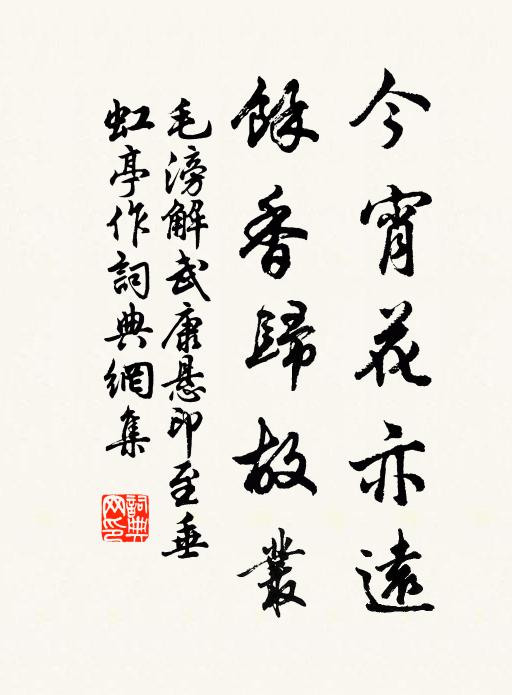 今宵花亦遠
餘香歸故叢
毛滂解武康懸印至垂
虹亭作詞典網集
詞典网印